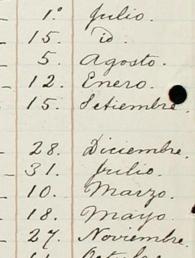 1.º Julio.
15. id.
5. Agosto.
12. Enero.
15. Setiembre.
28. Diciembre.
31. Julio.
10. Marzo.
18. Mayo.
27. Noviembre.